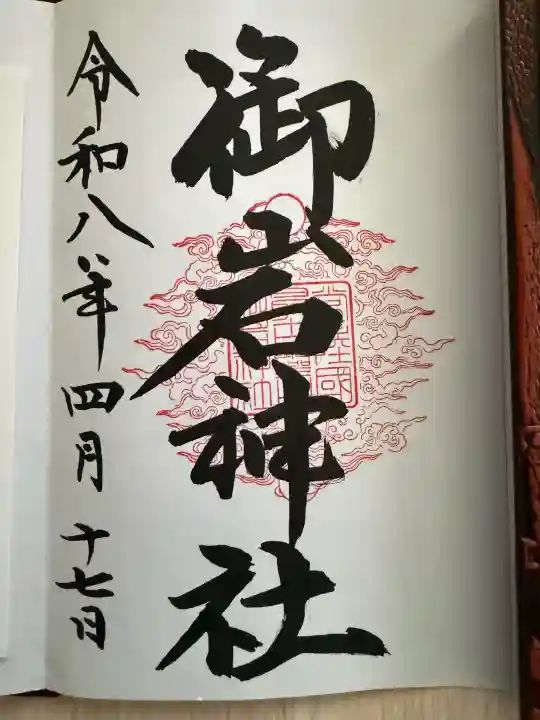 御岩神社
令和八年四月十七日